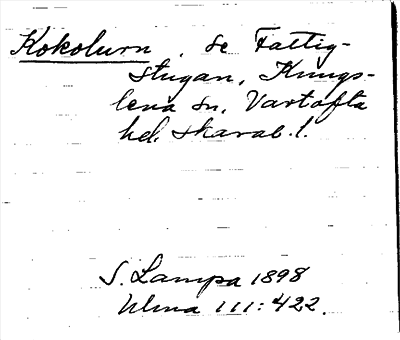 Kokolurn, se Fattig-
stugan, Kungs-
lena sn, Vartofta
hd. Skarab. l.
S. Lampa 1898
Ulma 111:422.